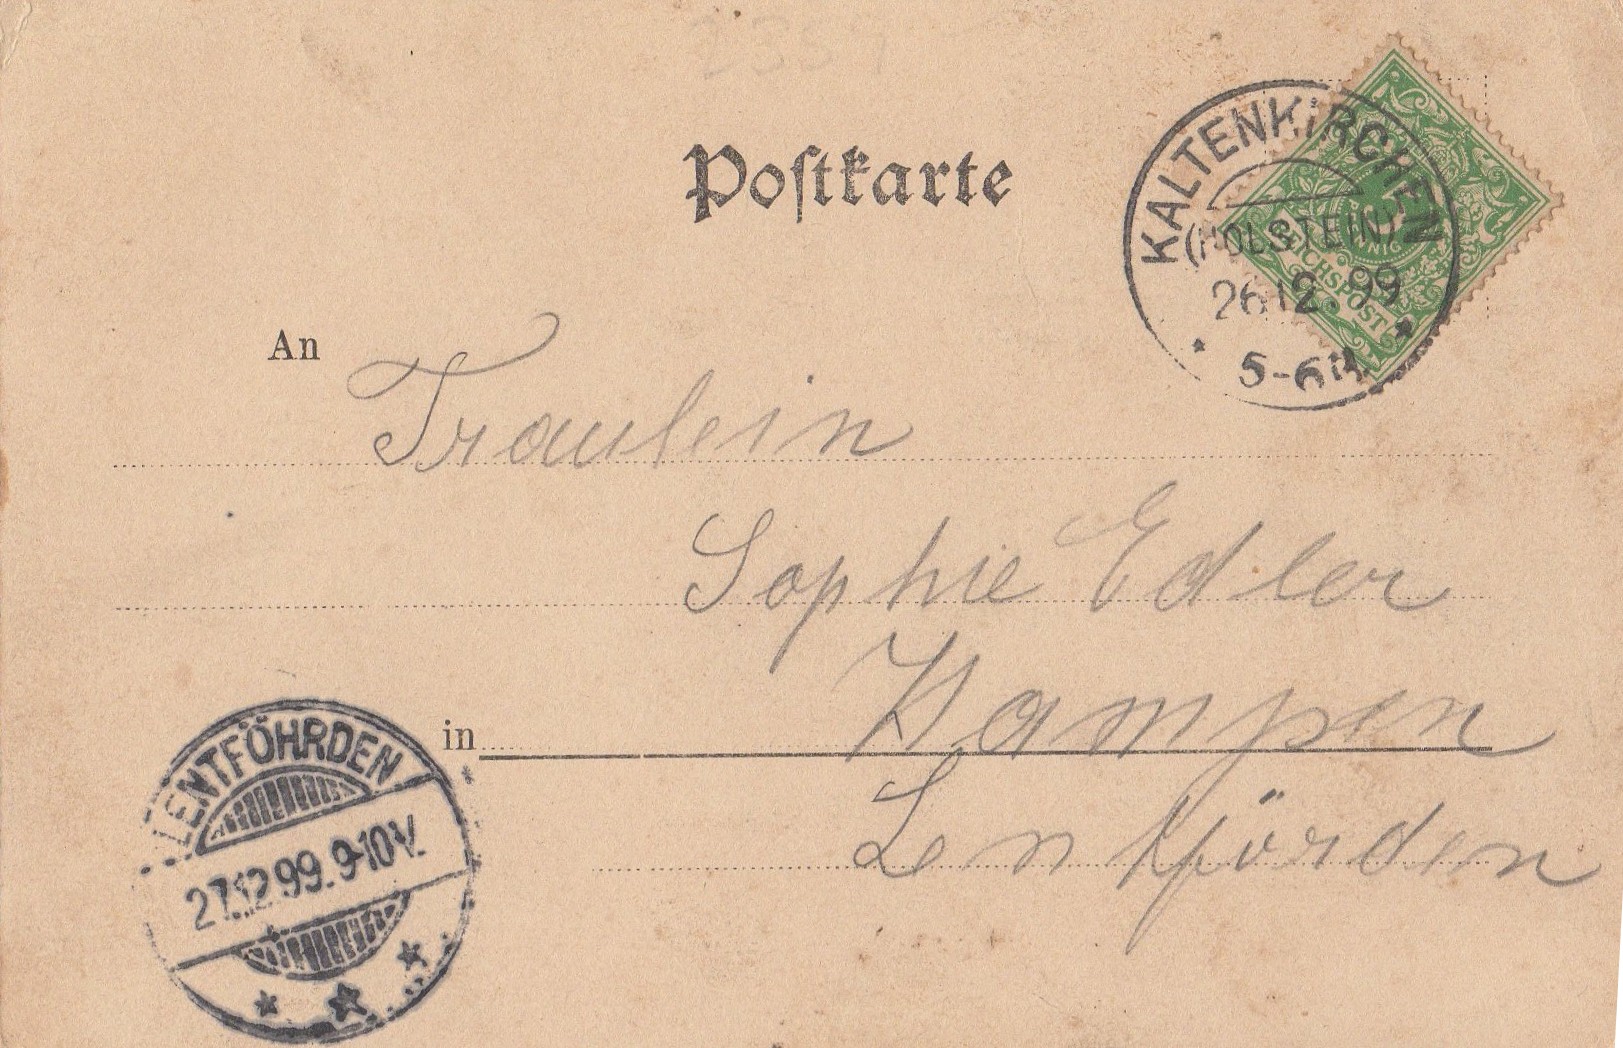 2357
Postkarte
KALTENKIRCHEN
(HOLSTEIN)
26 12. 99
5-6N
PFENNIG
REICHSPOST
An
Fraulein
Sophie Edler
in
Kampen
Lentförden
LENTFÖHRDEN
27.12.99.9-10V.